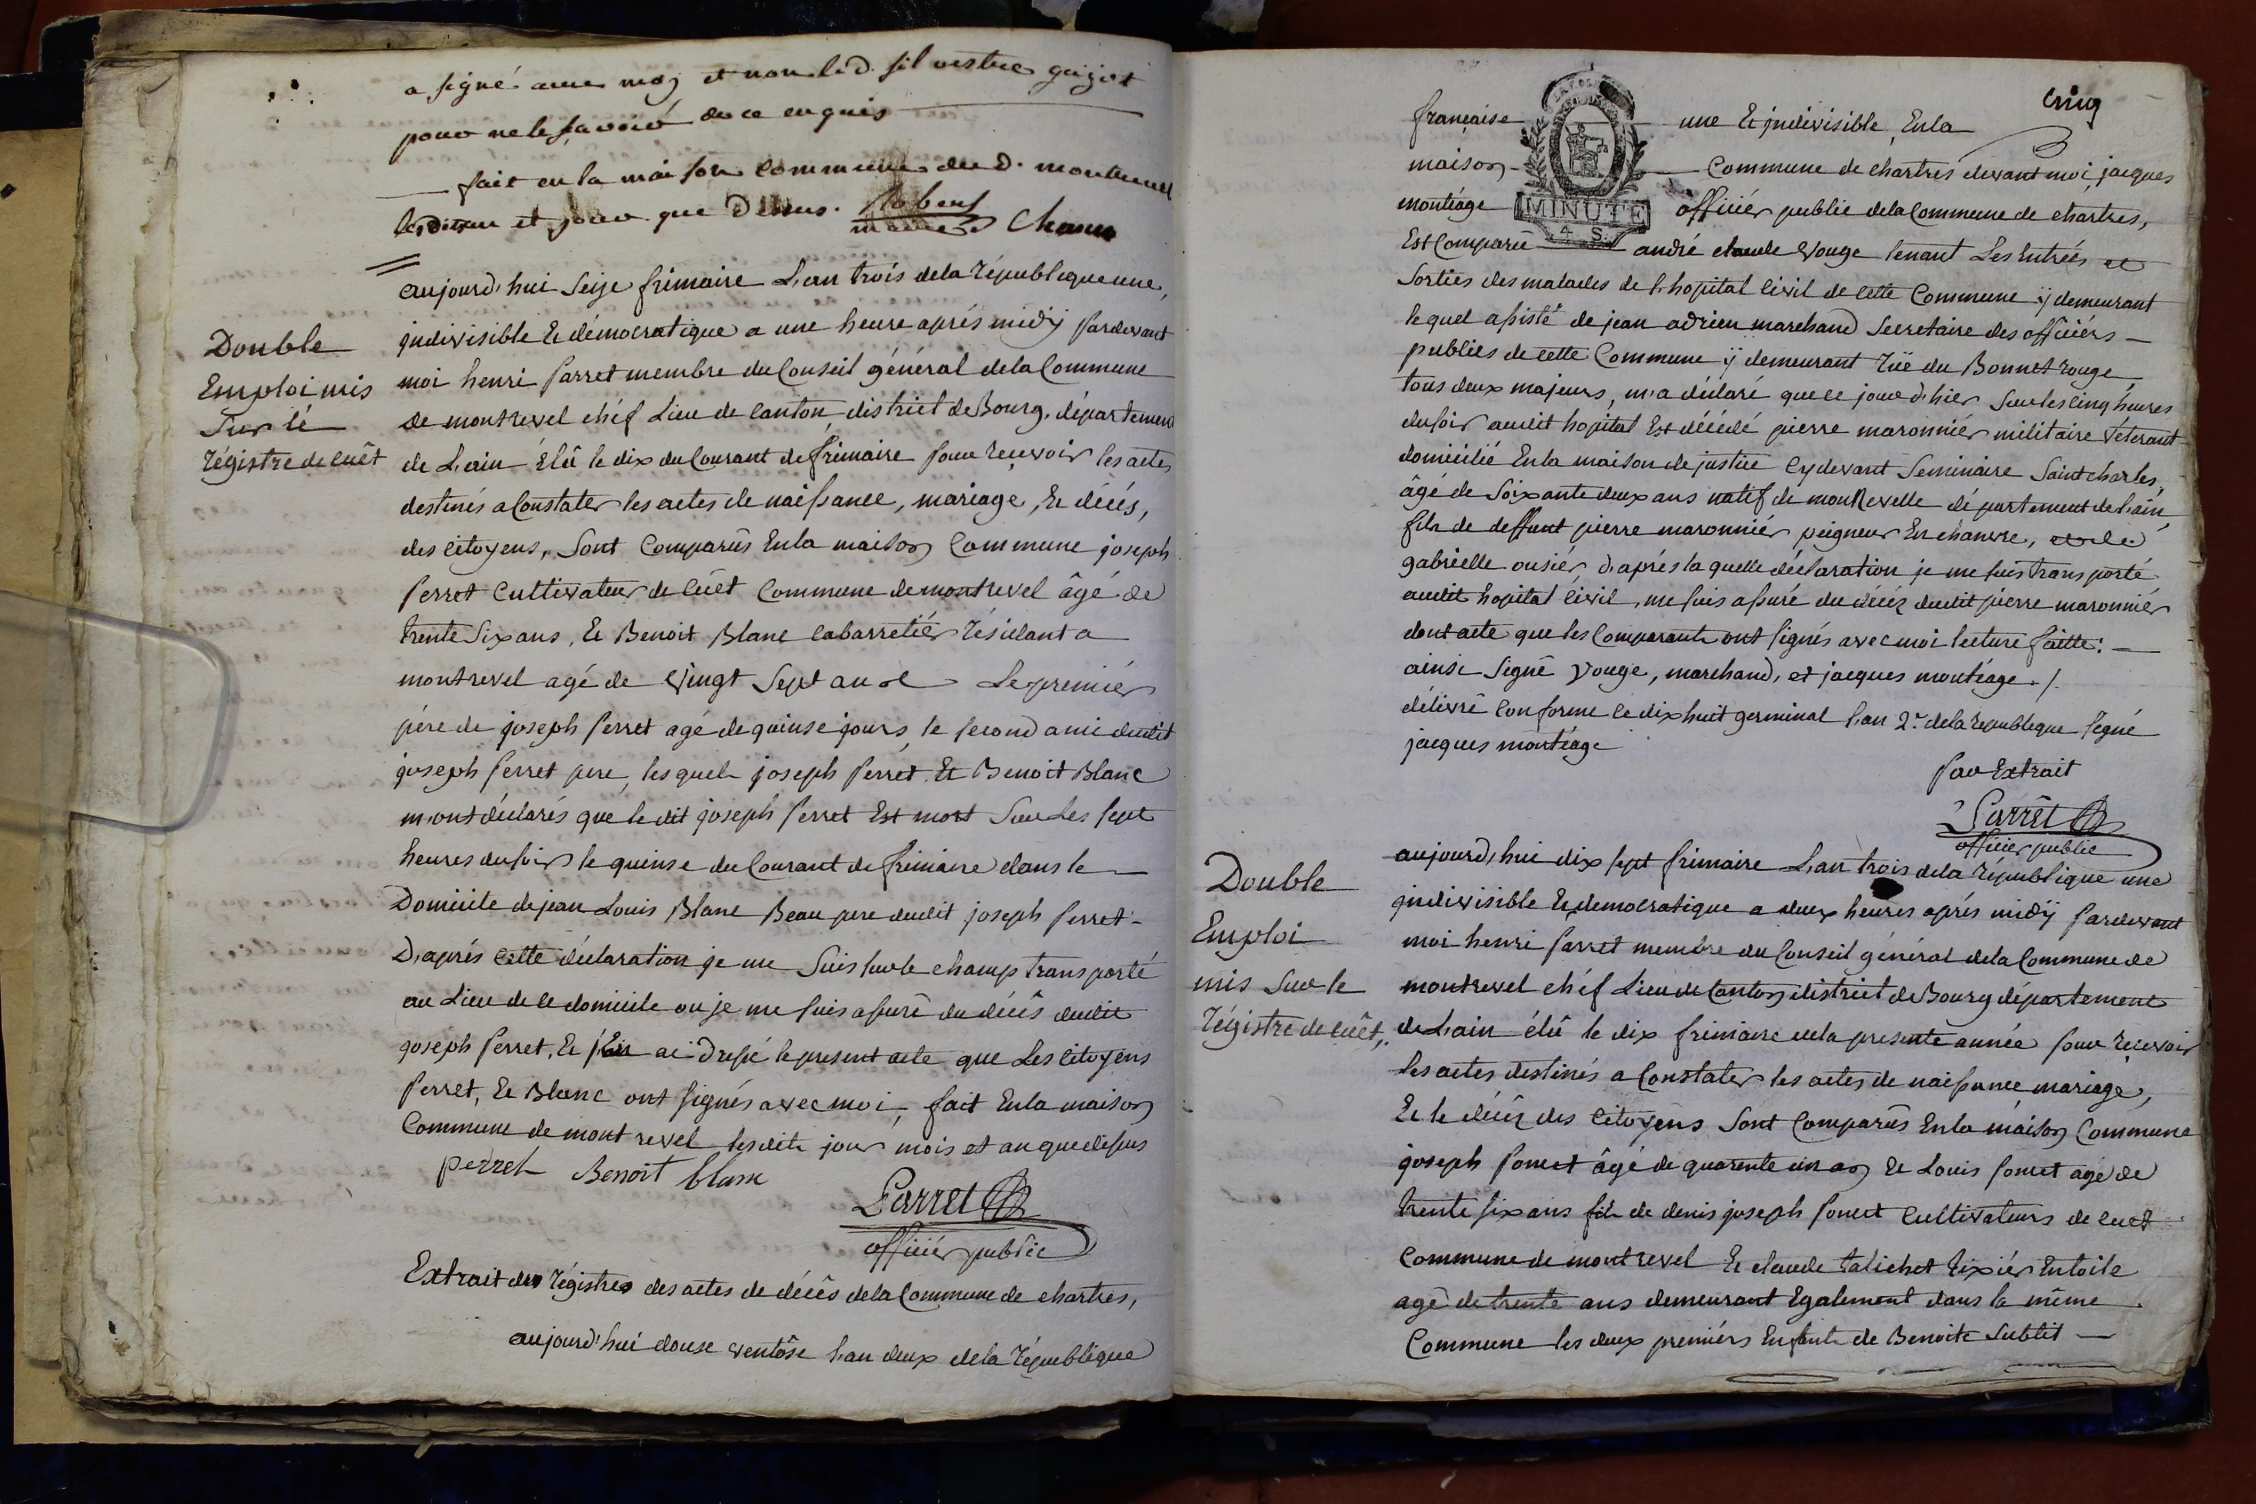 a signé avec moy et non led. silvestre guigot
pour ne le sçavoir de ce enquis
fait en la maison commune du d. montrevel
les dits an et jour que dessus. Robeuf
maire Chanu
Double
Emploi mis
Sur lé
régistre de cuêt
aujourd'hui seize frimaire L'an trois de la république une,
indivisible Et démocratique a une heure aprés midÿ pardevant
moi henri parret membre du Conseil général de la Commune
de montrevel chéf Lieu de canton, district de Bourg, département
de L'ain Elû le dix du Courant de frimaire pour reçevoir les actes
destinés a Constater les actes de naissance, mariage, Et décés,
des citoyens, Sont Comparûs En la maison Commune joseph
perret cultivateur de cûêt Commune de montrevel âgé de
trente six ans, Et Benoit Blanc cabarretiér résidant a
montrevel agé de vingt sept ans Le premiér
pére de joseph perret agé de quinse jours, le second ami dudit
joseph perret pere, lesquels joseph perret Et Benoit Blanc
m'ont déclarés que le dit joseph perret Est mort Sur Les sept
heures du soir le quinse du Courant de frimaire dans le
Domicile de jean Louis Blanc Beau pere dudit joseph perret
D'aprés cette déclaration je me Suis sur le champ transporté
au Lieu de ce domicile ou je me suis assuré du décês dudit
joseph perret, Et j'En ai dressé le present acte que Les citoyens
perret, Et Blanc ont signés avec moi, fait En la maison
Commune de mont revel lesdits jour mois et an que dessus
perret Benoît blanc
Parret
officiér public
Extrait des régistres des actes de décês de la Commune de chartres,
aujourd'hui douse ventôse l'an deux de la république
cinq
française une Et jndivisible, En la
maison Commune de chartres devant moi, jacques
montéage officiér public de la Commune de chartres,
MINUTE
4. S.
Est Comparu andré claude Vouge tenant Les Entrées et
Sorties des malades de l'hopital civil de cette Commune ÿ demeurant
lequel assisté de jean adrien marchand Secretaire des officiérs
publics de cette Commune ÿ demeurant rüe du Bonnet rouge
tous deux majeurs, m'a déclaré que ce jour d'hier Sur les cinq heures
du soir audit hopital Est décédé pierre maronniér militaire Véterant
domicilié En la maison de justice cy devant Seminaire Saint charles,
âgé de Soixante deux ans natif de monRevelle département de l'ain
fils de deffunt pierre maronniér peigneur En chanvre, et de
gabrielle ousiér d'aprés laquelle déclaration je me suis transporté
audit hopital civil, me suis assuré du décéz dudit pierre maronniér
dont acte que les Comparants ont signés avec moi lecture faitte:
ainsi Signé Vouge, marchand, et jacques montéage ./.
délivré conforme ce dix huit germinal l'an 2e de la republique Signé
jacques montéage
par Extrait
Parrêt
officier public
Double
Emploi
mis Sur le
régistre de cuêt,.
aujourd'hui dix sept frimaire L'an trois de la république une
jndivisible Et democratique a deux heures aprés midÿ pardevant
moi henri parret membre du Conseil général de la Commune de
montrevel chéf Lieu de Canton district de Bourg département
de L'ain élû le dix frimaire de la presente année pour recevoir
les actes destinés a Constater les actes de naissance, mariage,
Et le décéz des Citoyens Sont Comparûs En la maison Commune
joseph ponct âgé de quarente cin an Et Louis ponct agé de
trente six ans fils de denis joseph ponct cultivateurs de cuet
Commune de montrevel Et claude talichet tixiér En toile
agé de trente ans demeurant Egalement dans la même
Commune les deux premiérs Enfants de Benoite Sublit